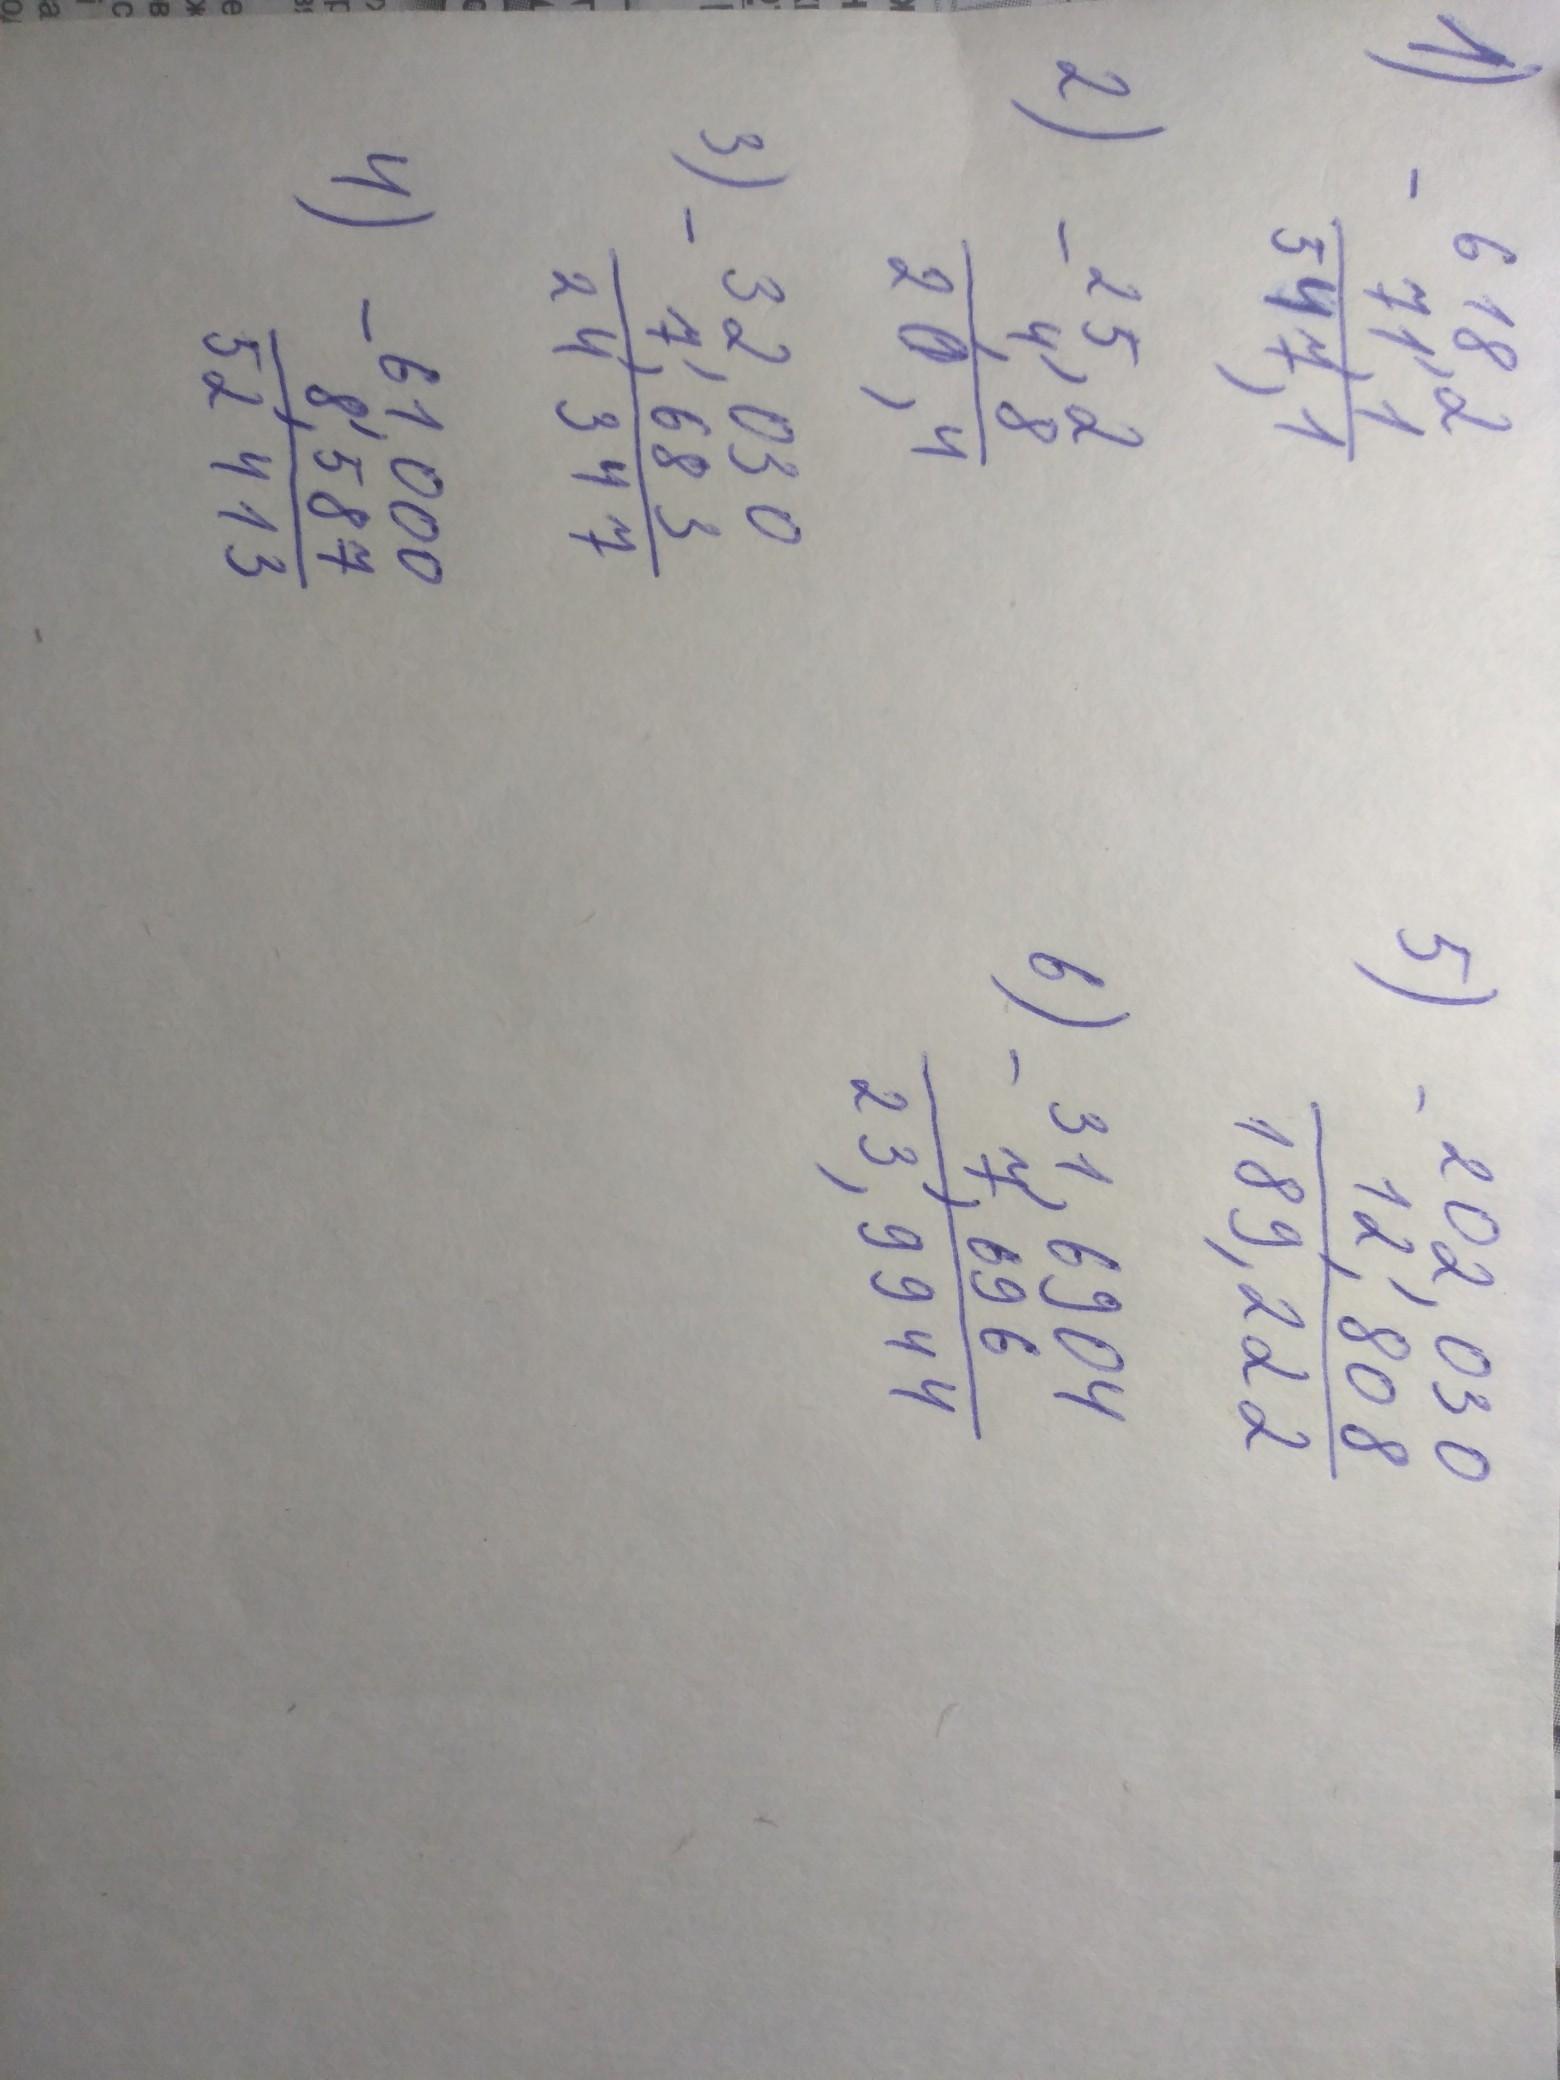 1) - 618,2
71,1
547,1
2) - 25,2
4,8
20,4
3) - 32,030
7,683
24,347
4) - 61,000
8,587
52,413
5) - 202,030
12,808
189,222
6) - 31,6904
7,696
23,9944